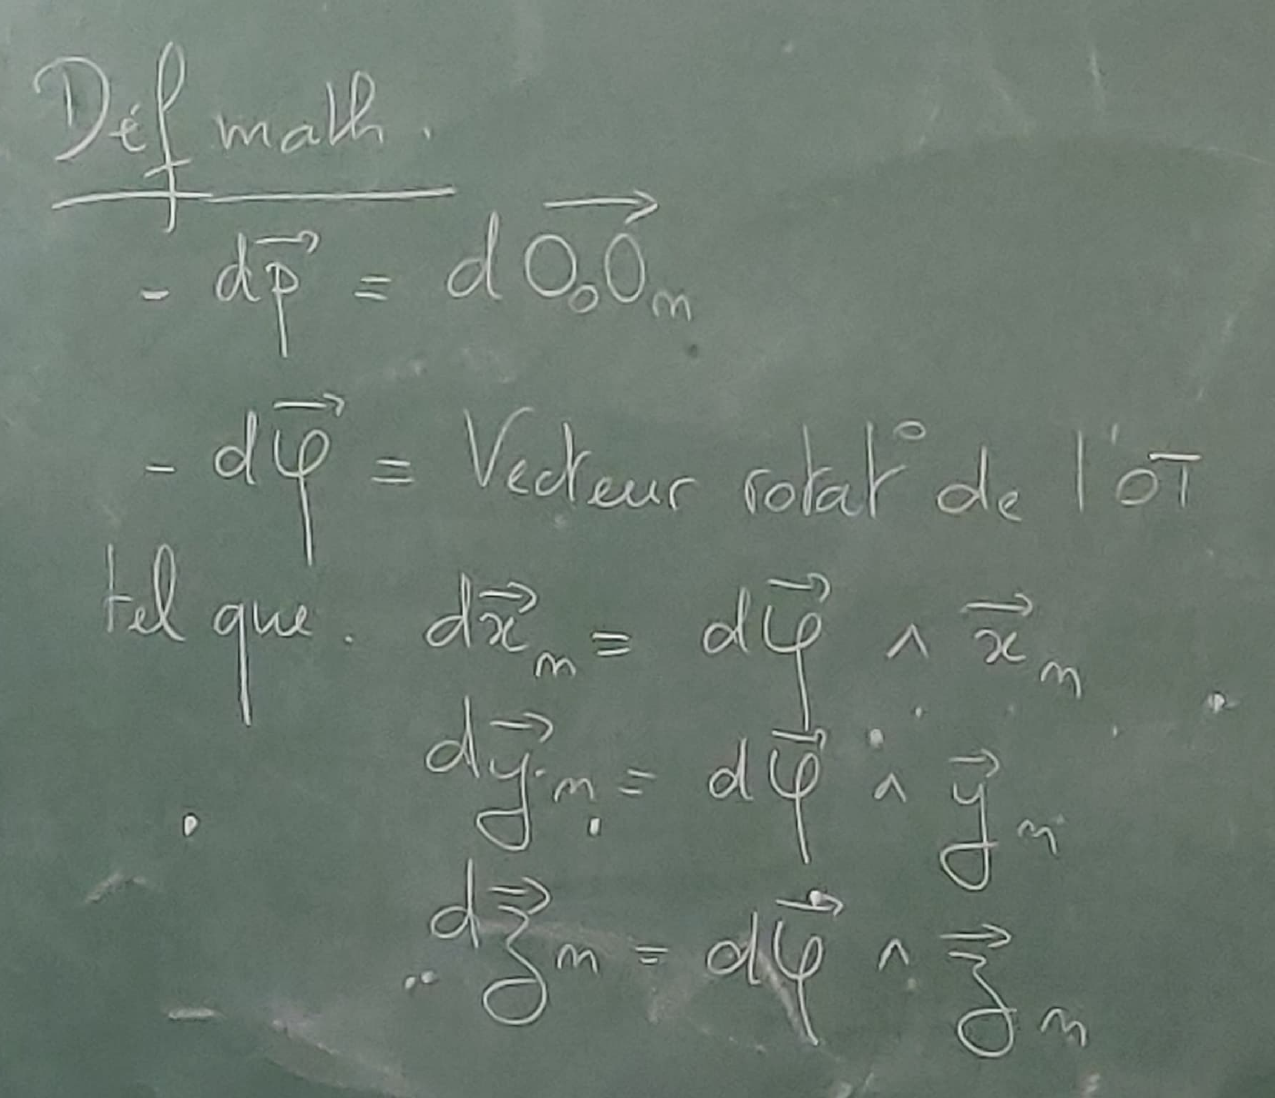 Déf math.
- d\vec{p} = d\overrightarrow{O_0O_n}
- d\vec{φ} = Vecteur rotat° de l'OT
tel que. d\vec{x}_n = d\vec{φ} ∧ \vec{x}_n
d\vec{y}_n = d\vec{φ} ∧ \vec{y}_n
d\vec{z}_n = d\vec{φ} ∧ \vec{z}_n